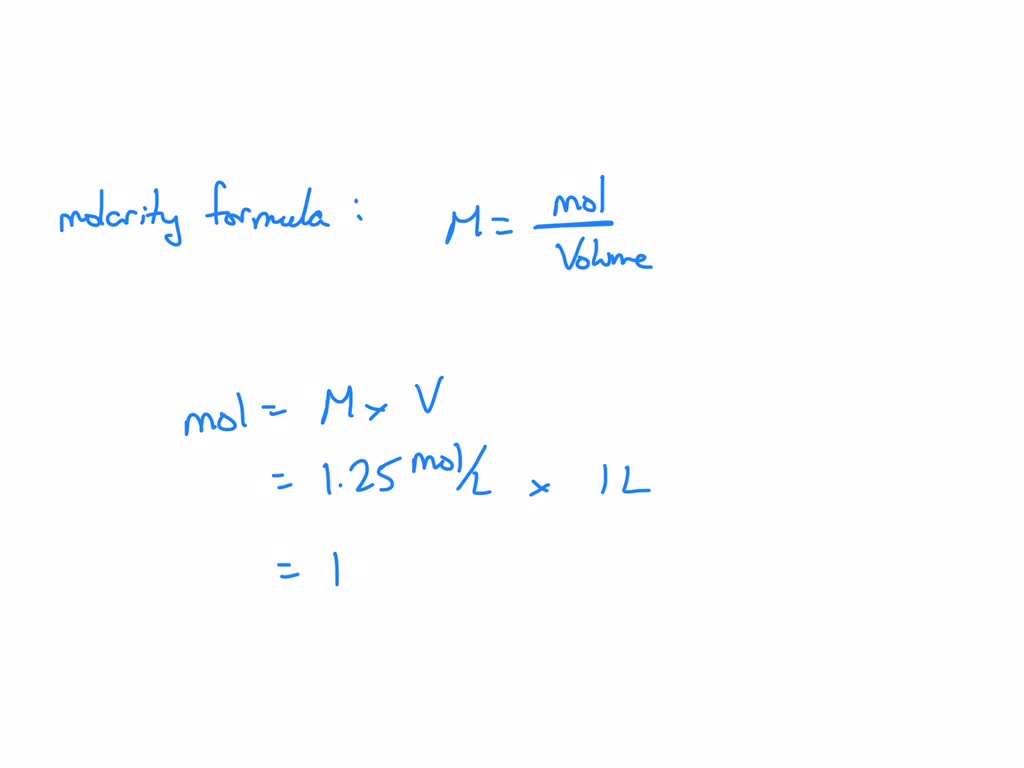 molarity formula : M = mol / Volume
mol = M × V
= 1.25 mol/L × 1L
= 1